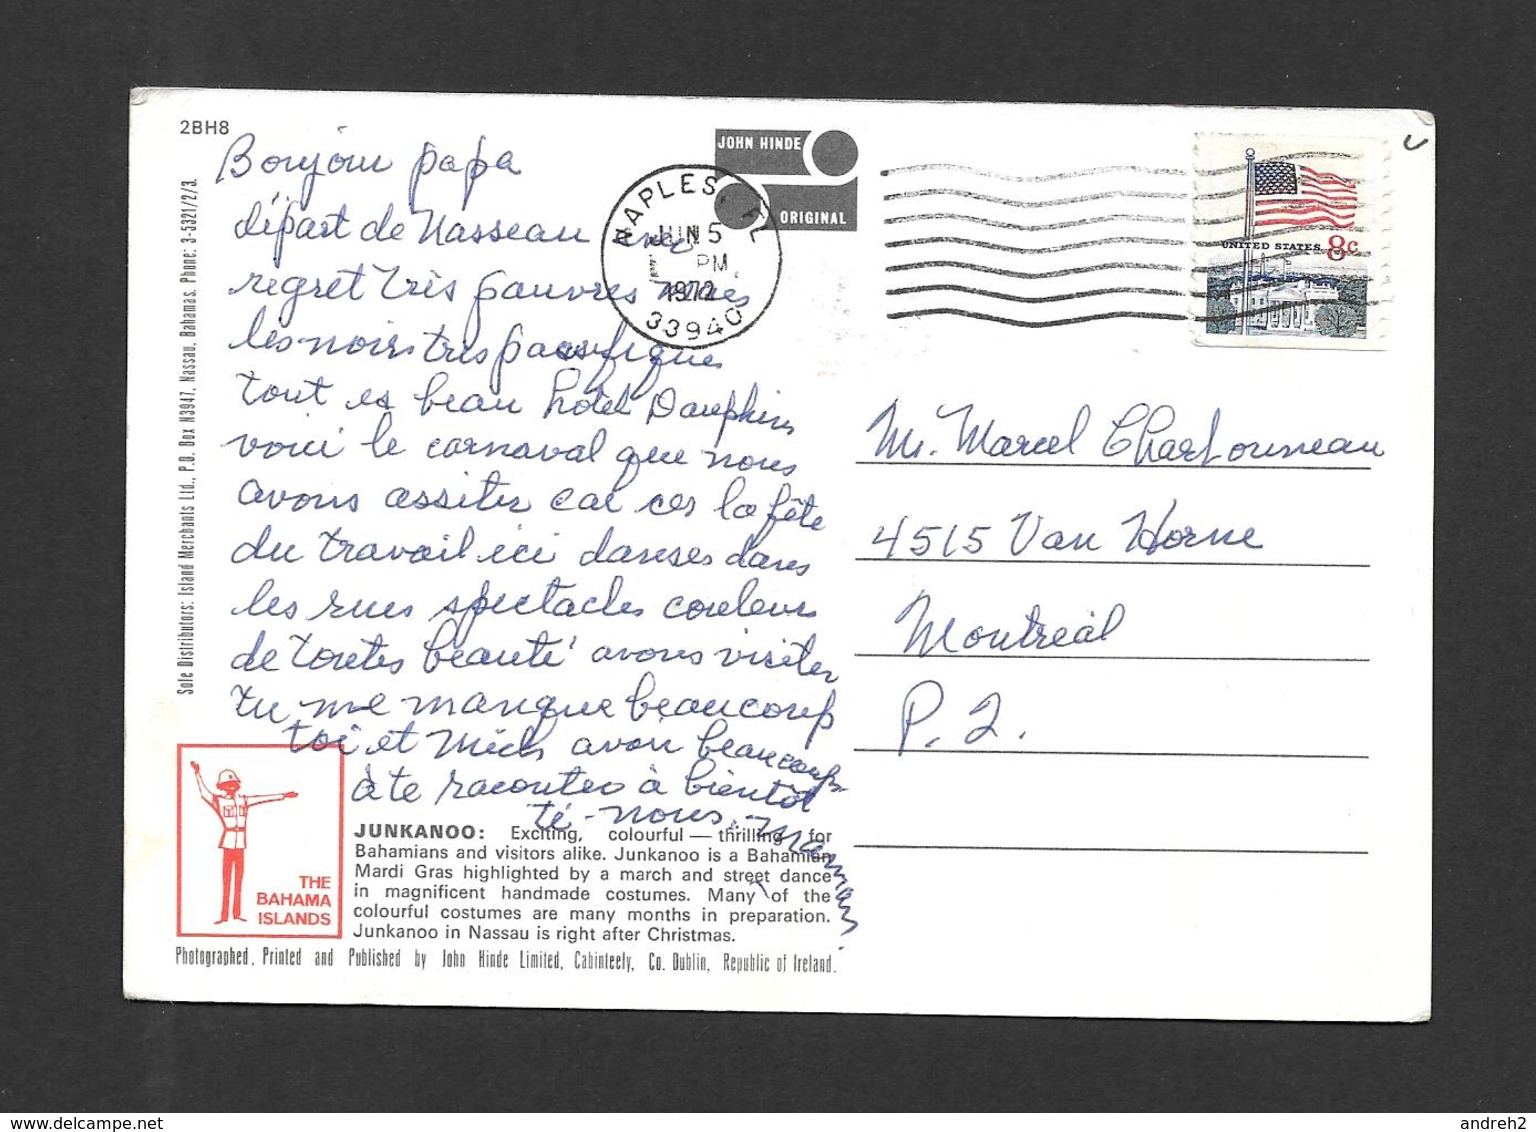 2BH8
Bonjour papa
départ de Nasseau avec
regret très pauvres mais
les noirs très pacifiques
tout es beau hotel Dauphin
voici le carnaval que nous
avons assiter cal ces la fête
du travail ici danses dans
les rues spectacles couleurs
de toutes beauté avons visiter
tu me manque beaucoup
toi et Mich avoir beaucoup
à te raconter à bientôt
té-nous. maman.
Sole Distributors: Island Merchants Ltd., P.O. Box N3947, Nassau, Bahamas. Phone: 3-5321/2/3.
JOHN HINDE
ORIGINAL
NAPLES, FL
JUN 5
PM
1972
33940
UNITED STATES 8c
Mr. Marcel Charbonneau
4515 Van Horne
Montréal
P. Q.
THE
BAHAMA
ISLANDS
JUNKANOO: Exciting, colourful — thrilling for
Bahamians and visitors alike. Junkanoo is a Bahamian
Mardi Gras highlighted by a march and street dance
in magnificent handmade costumes. Many of the
colourful costumes are many months in preparation.
Junkanoo in Nassau is right after Christmas.
Photographed, Printed and Published by John Hinde Limited, Cabinteely, Co. Dublin, Republic of Ireland.
andreh2